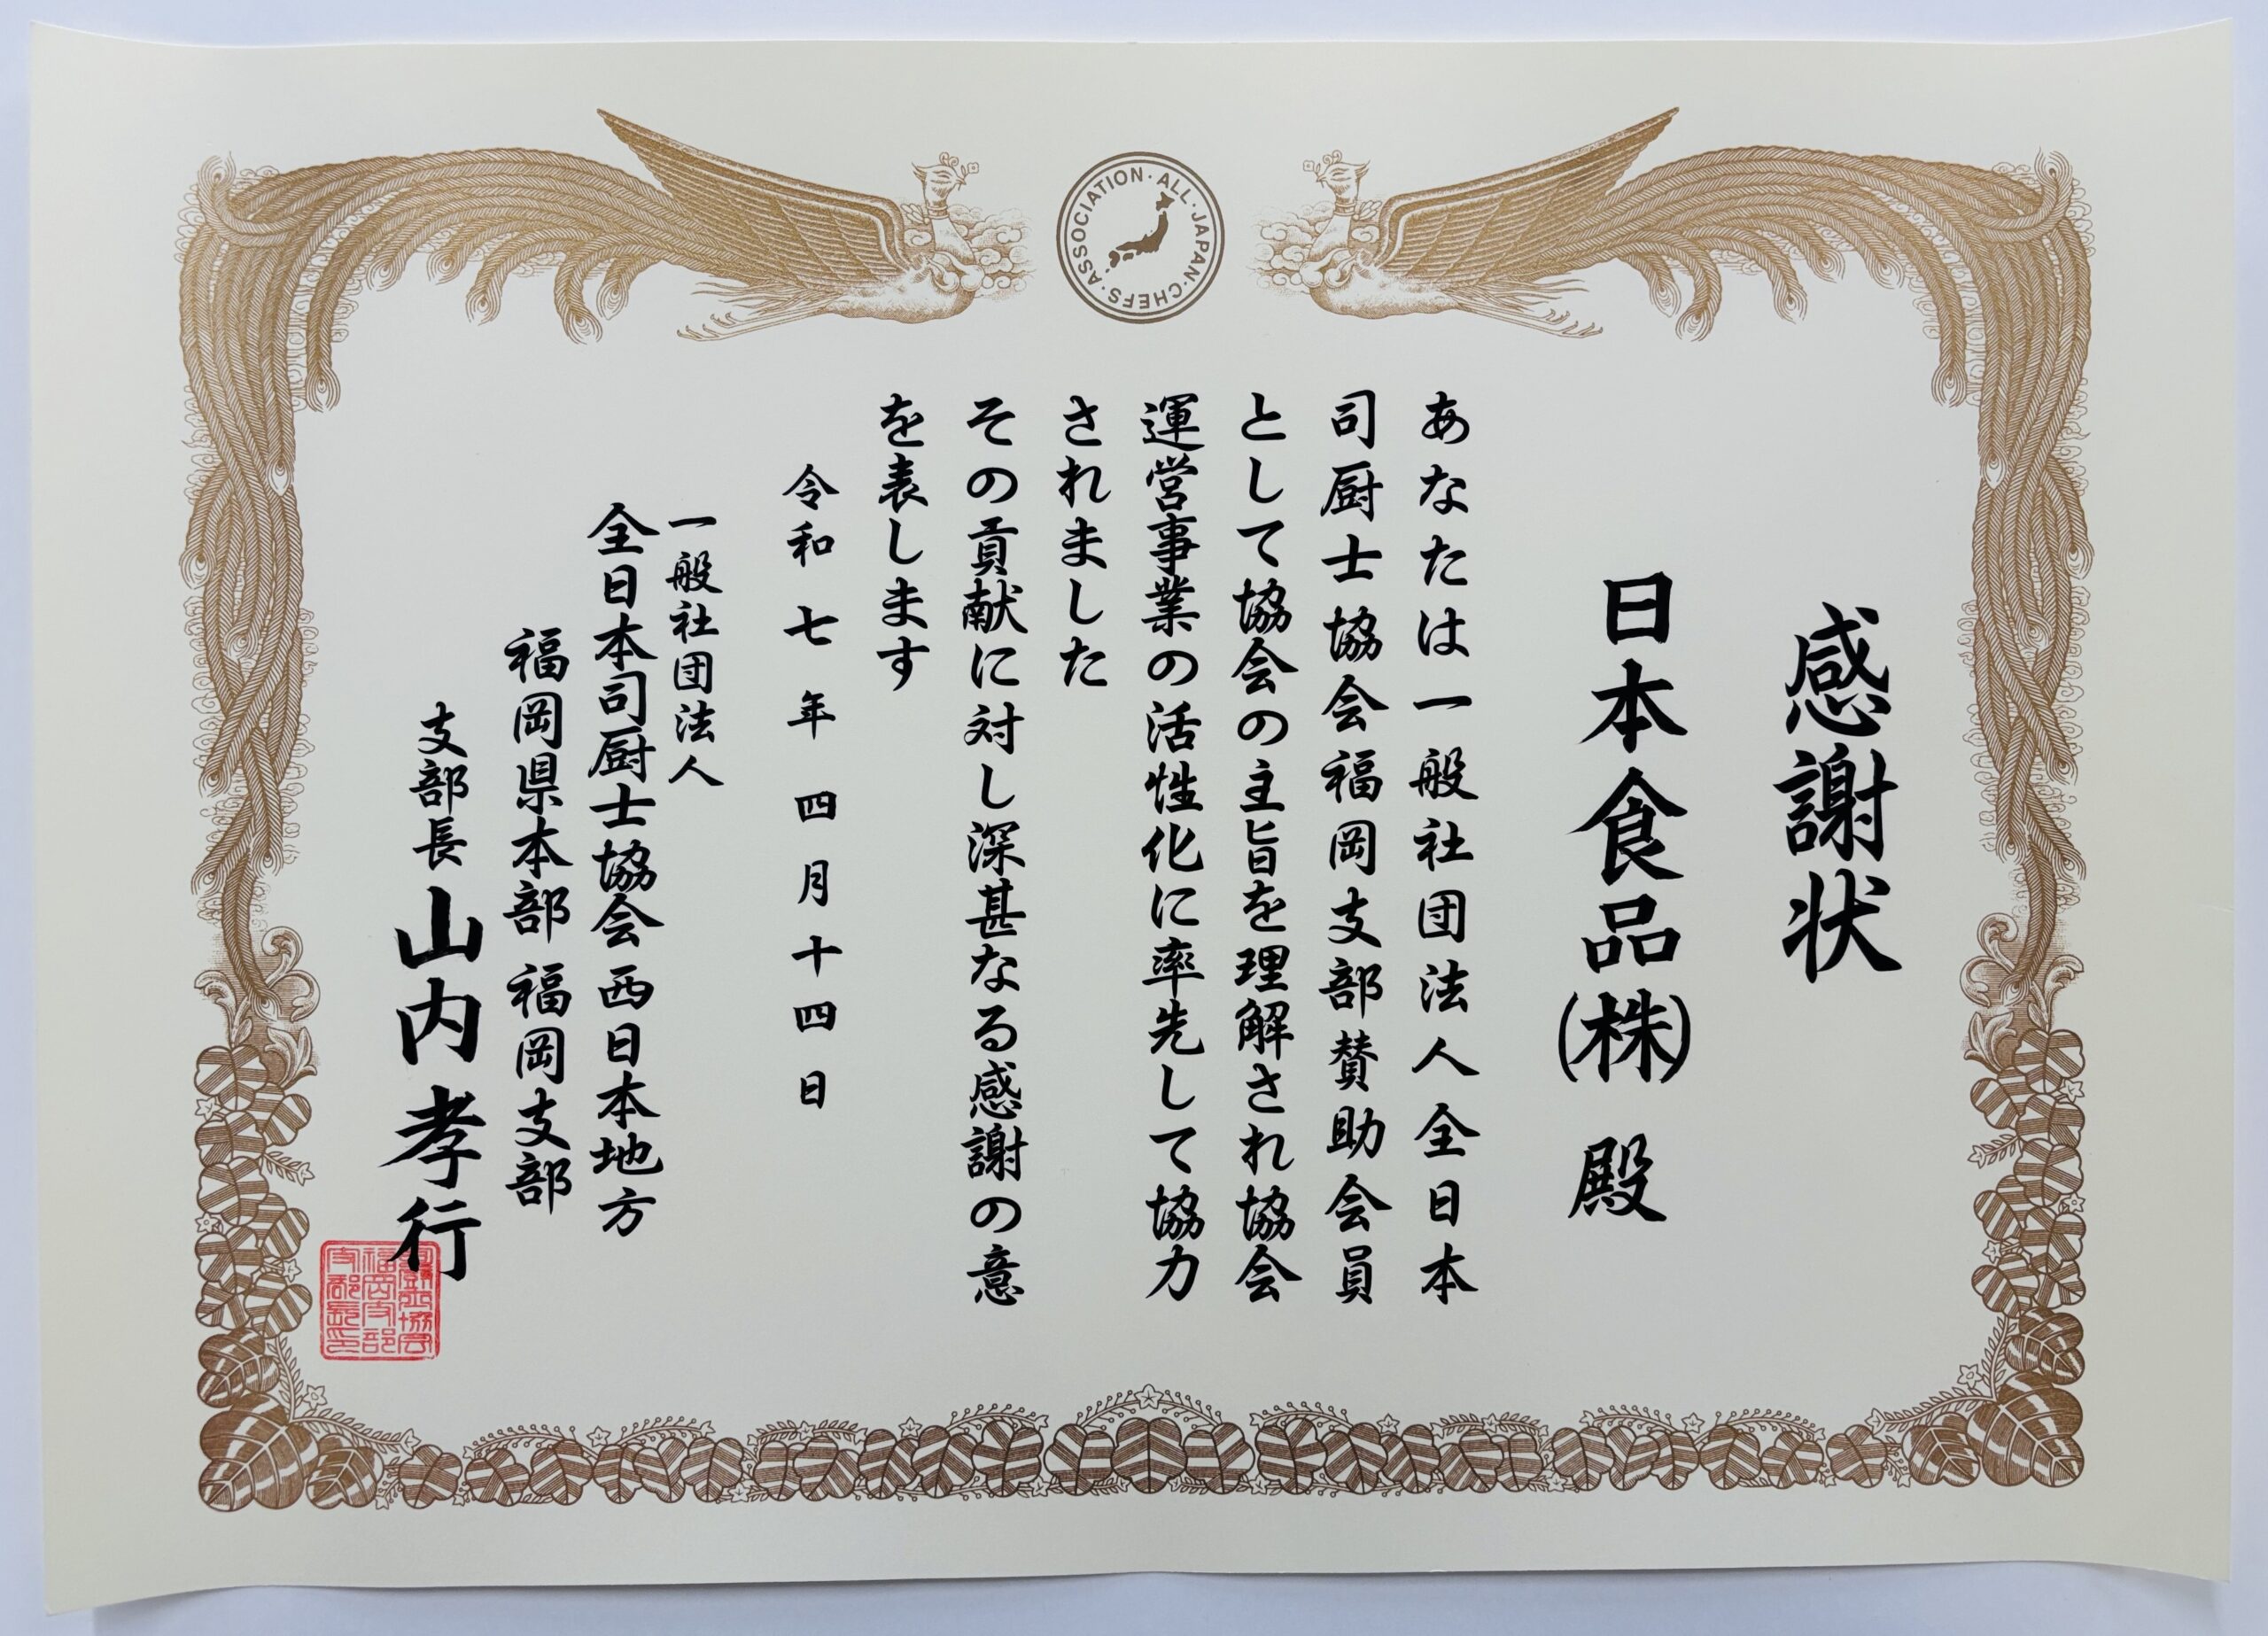 ASSOCIATION・ALL・JAPAN・CHEFS・
感謝状
日本食品(株) 殿
あなたは一般社団法人全日本
司厨士協会福岡支部賛助会員
として協会の主旨を理解され協会
運営事業の活性化に率先して協力
されました
その貢献に対し深甚なる感謝の意
を表します
令和七年四月十四日
一般社団法人
全日本司厨士協会 西日本地方
福岡県本部 福岡支部
支部長 山内孝行